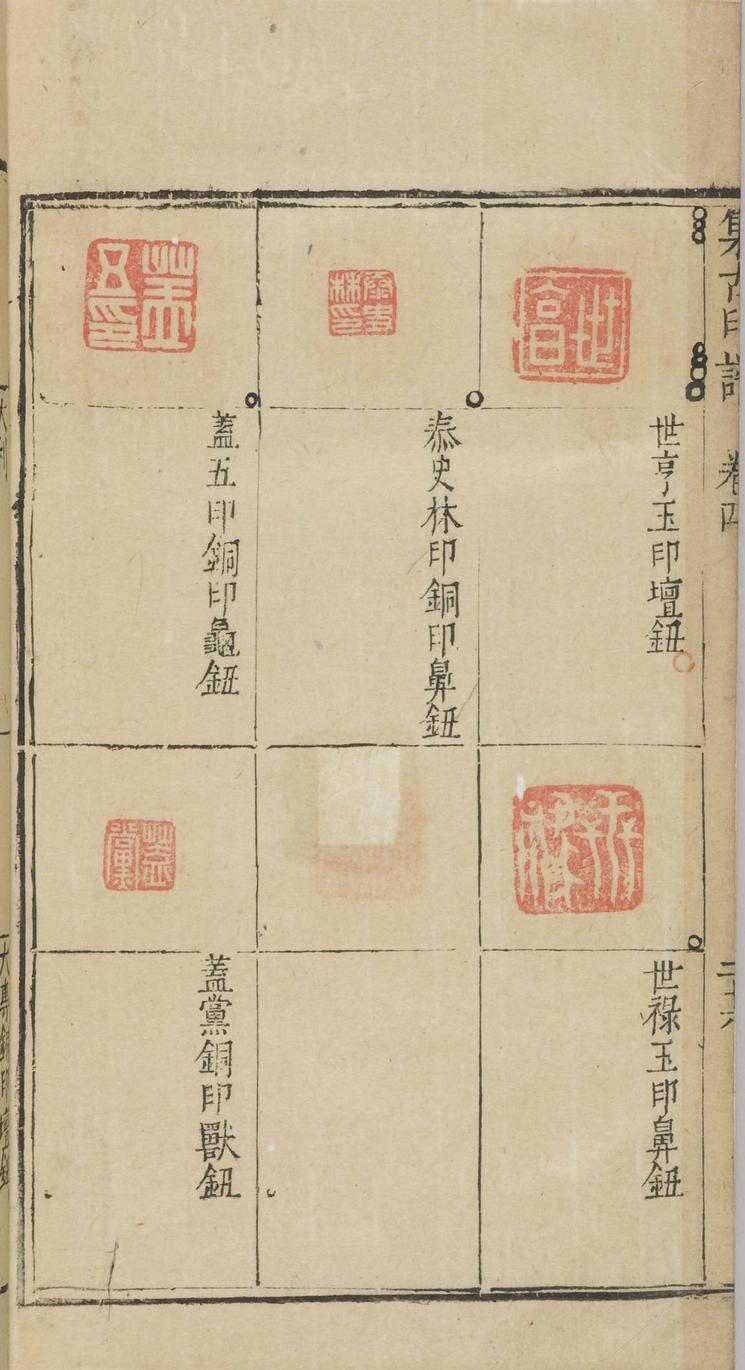 集古印譜 卷四
二十六
世亨
世亨玉印壇鈕
世祿玉印鼻鈕
泰史林印銅印鼻鈕
蓋五印
蓋五印銅印龜鈕
蓋黨
蓋黨銅印獸鈕